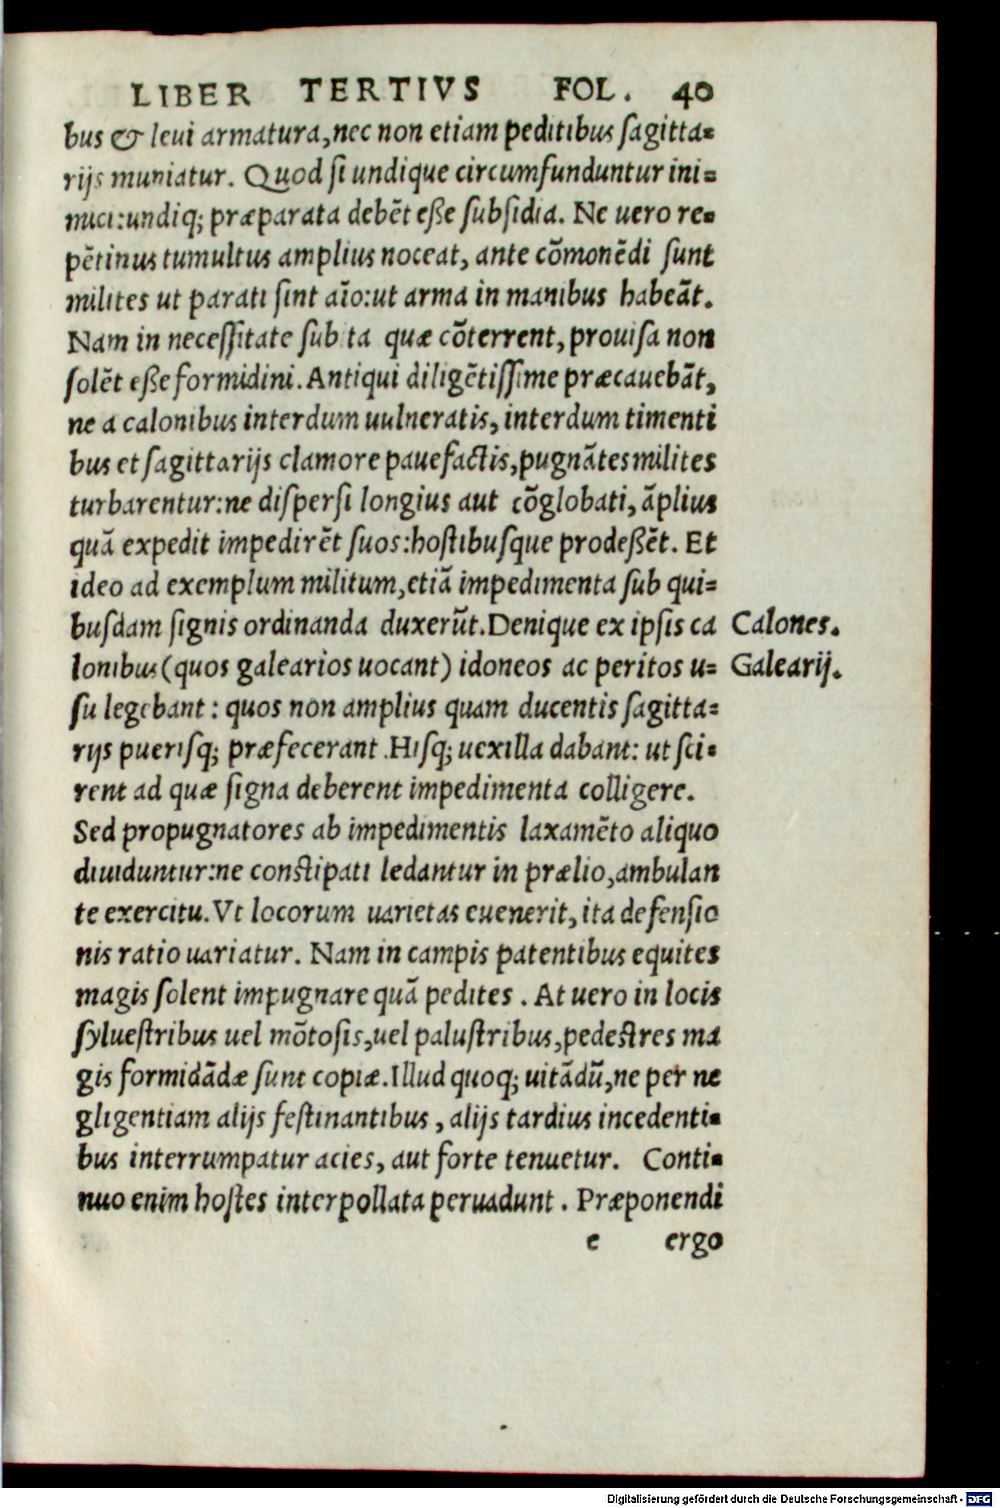 LIBER TERTIVS FOL. 40
bus & leui armatura, nec non etiam peditibus ſagitta-
rijs muniatur. Quod ſi undique circumfunduntur ini-
mici: undiq; præparata debēt eſſe ſubſidia. Ne uero re-
pētinus tumultus amplius noceat, ante cōmonēdi ſunt
milites ut parati ſint aīo: ut arma in manibus habeāt.
Nam in neceſſitate ſubita quæ cōterrent, prouiſa non
ſolēt eſſe formidini. Antiqui diligētiſſime præcauebāt,
ne a calonibus interdum uulneratis, interdum timenti
bus et ſagittarijs clamore pauefactis, pugnātes milites
turbarentur: ne diſperſi longius aut cōglobati, āplius
quā expedit impedirēt ſuos: hoſtibuſque prodeſſēt. Et
ideo ad exemplum militum, etiā impedimenta ſub qui-
buſdam ſignis ordinanda duxerūt. Denique ex ipſis ca
Calones.
lonibus (quos galearios uocant) idoneos ac peritos u-
Galearij.
ſu legebant: quos non amplius quam ducentis ſagitta-
rijs pueriſq; præfecerant. Hiſq; uexilla dabant: ut ſci-
rent ad quæ ſigna deberent impedimenta colligere.
Sed propugnatores ab impedimentis laxamēto aliquo
diuiduntur: ne conſtipati ledantur in prælio, ambulan
te exercitu. Vt locorum uarietas euenerit, ita defenſio
nis ratio uariatur. Nam in campis patentibus equites
magis ſolent impugnare quā pedites. At uero in locis
ſylueſtribus uel mōtoſis, uel paluſtribus, pedeſtres ma
gis formidādæ ſunt copiæ. Illud quoq; uitādū, ne per ne
gligentiam alijs feſtinantibus, alijs tardius incedenti-
bus interrumpatur acies, aut forte tenuetur. Conti-
nuo enim hoſtes interpollata peruadunt. Præponendi
e ergo
Digitalisierung gefördert durch die Deutsche Forschungsgemeinschaft - DFG